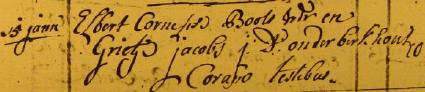 jann Elbert Cornelisse Boots wdr en
Grietje jacobs j: D: onder berkhout
Corapo testibus.